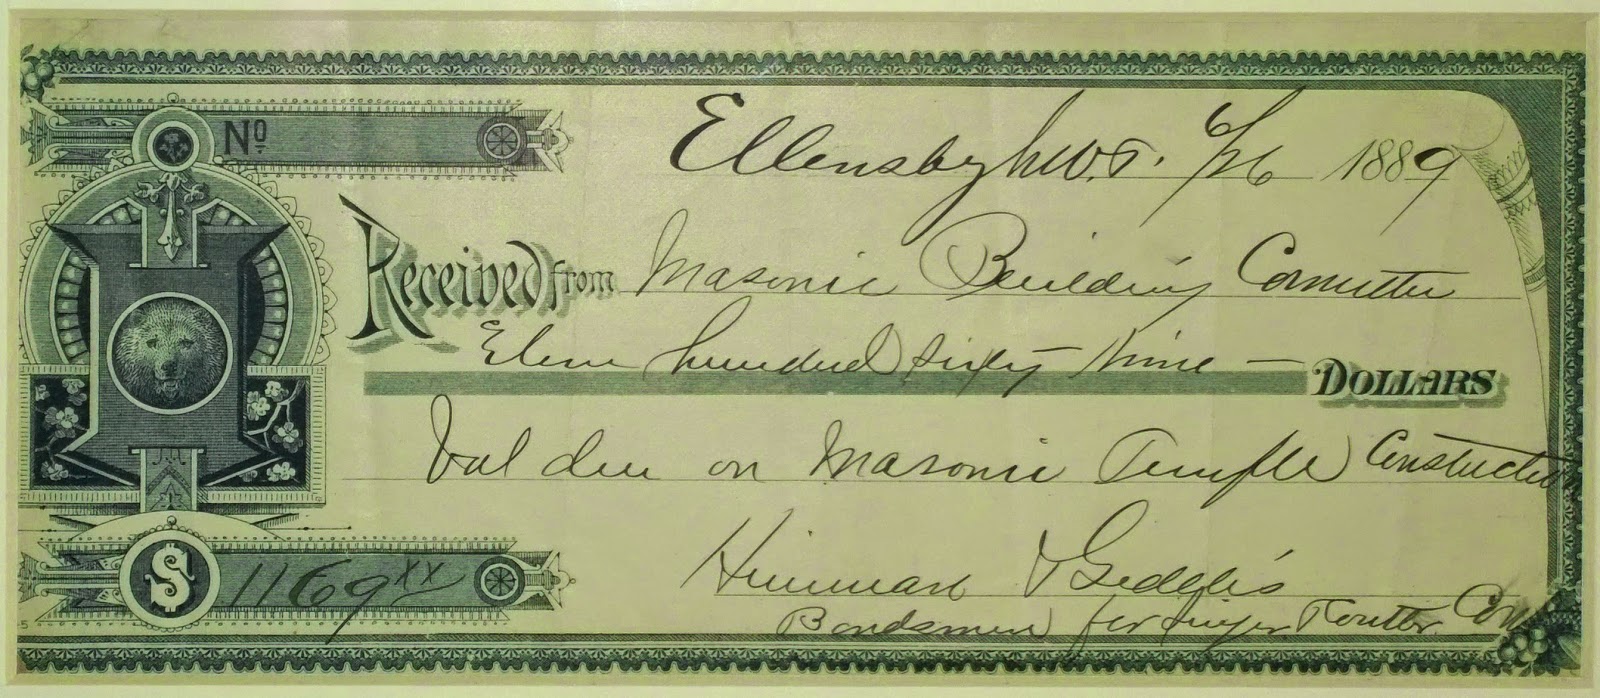 Nº
Ellensbgh W.T. 6/26 1889
Received from Masonic Building Committee
Eleven hundred sixty nine — DOLLARS
Bal due on Masonic Temple Construction
$ 1169 xx
Hinman & Geddis
Bondsmen for